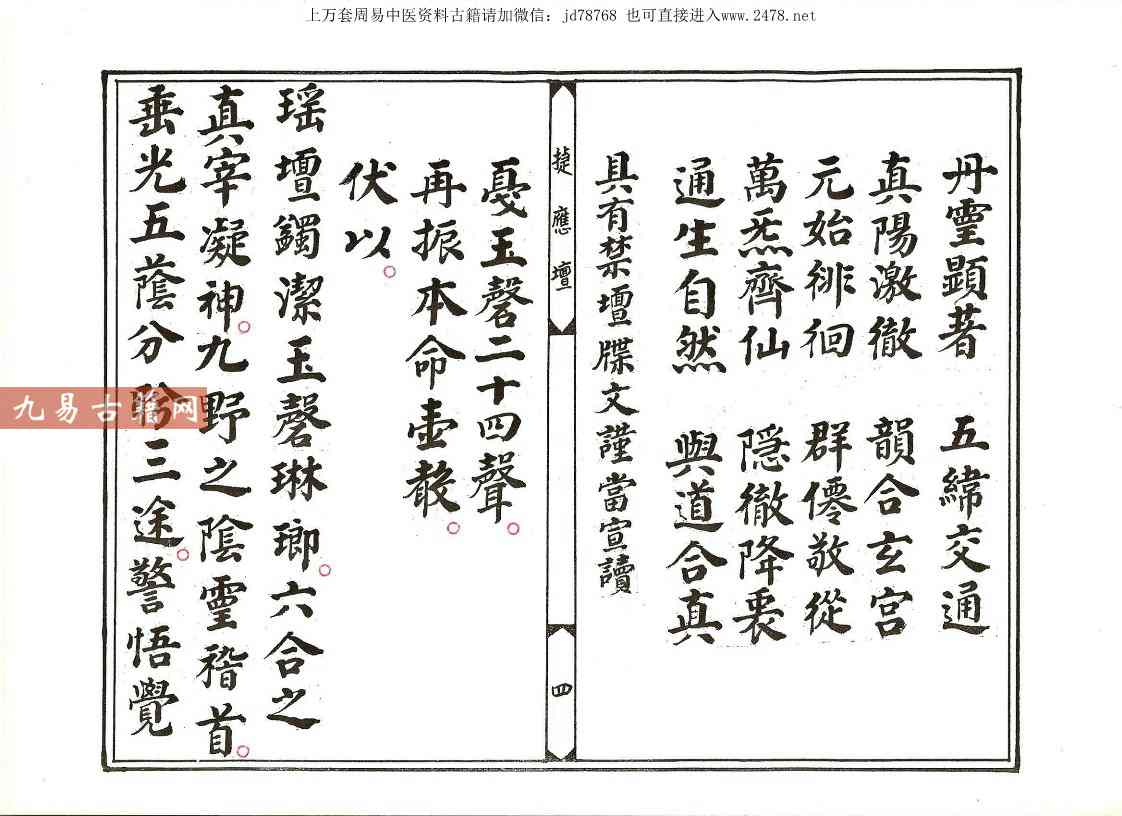 上万套周易中医资料古籍请加微信：jd78768 也可直接进入www.2478.net
丹靈顕著 五緯交通
真陽激徹 韻合玄宮
元始徘徊 群僊敬從
萬炁齊仙 隠徹降衷
通生自然 與道合真
具有禁壇牒文謹當宣讀
捷應壇
四
戞玉磬二十四聲。
再振本命壷散。
伏以。
瑶壇蠲潔玉磬琳瑯。六合之
真宰凝神。九野之陰靈稽首。
垂光五蔭分 三途。警悟覺
九易古籍网